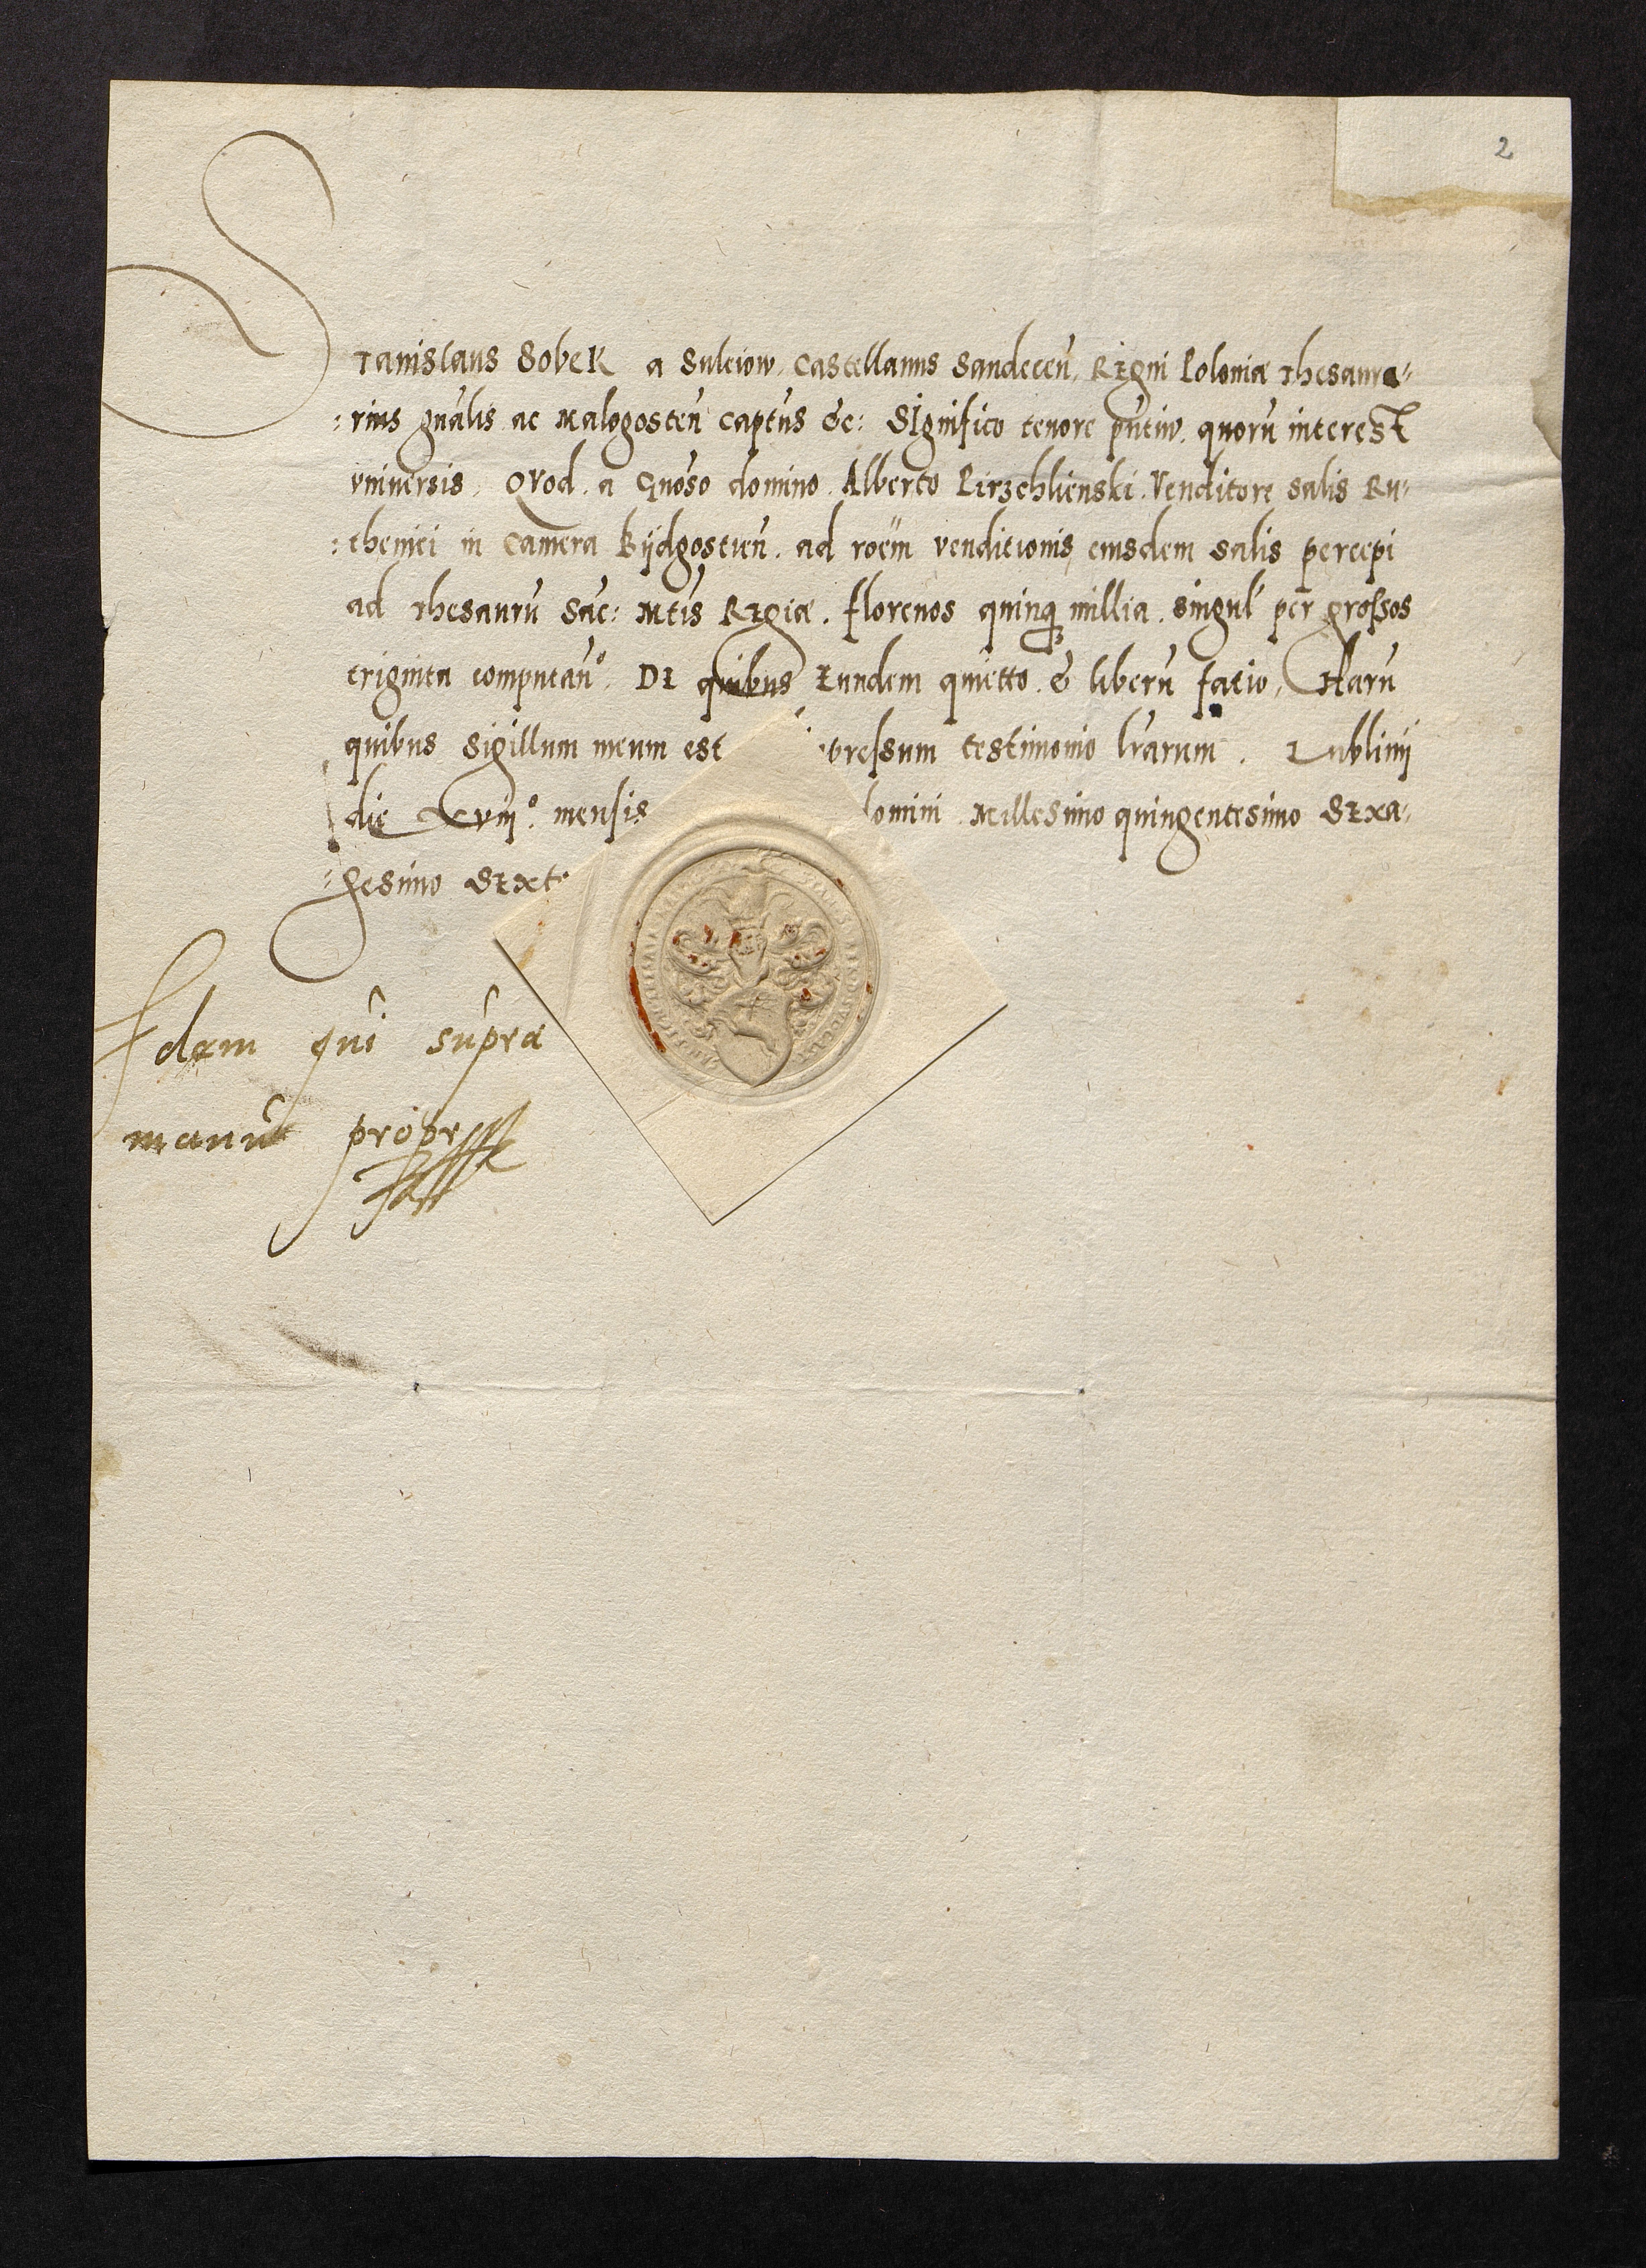 2
Stanislaus Sobek a Suleiow, Castellanus Sandeceñ, Regni Poloniæ Thesaura-
:rius gñalis ac Malogosteñ Captũs &c: Significo tenore pñtiũ. quorũ interest
vniuersis, Qvod a Gñoso domino Alberto Pirzchlienski Venditore salis Ru-
:thenici in Camera Bijdgostieñ. ad roem̃ venditionis eiusdem salis percepi
ad Thesaurũ Sac: Mtis Regiæ. florenos quinq millia. singul per grossos
triginta computañ°. De quibus Eundem quietto & liberũ facio, Harũ
quibus sigillum meum est pressum testimonio lrarum. Lublinij
die Xviij° mensis domini Millesimo quingentesimo Sexa-
:gesimo Sexto
Idem qui supra
manu propr